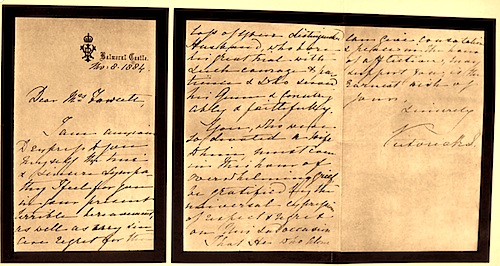 Balmoral Castle.
Nov. 8. 1884.
Dear Mrs Fawcett,
I am anxious
to express to you
myself the true
& sincere sympa-
thy I feel for you
in your present
terrible bereavement,
as well as my sin-
cere regret for the
loss of your distinguished
Husband, who bore
his great trial with
such courage & pa-
tience & who served
his Queen & Country
ably & faithfully.
You, who were
so devoted a wife
to him must even
in this hour of
overwhelming grief
be gratified by the
universal expression
of respect & regret
on this sad occasion
That He who alone
can give consolation
& peace in the hour
of affliction, may
support you, is the
earnest wish of
yours,
Sincerely
Victoria R I